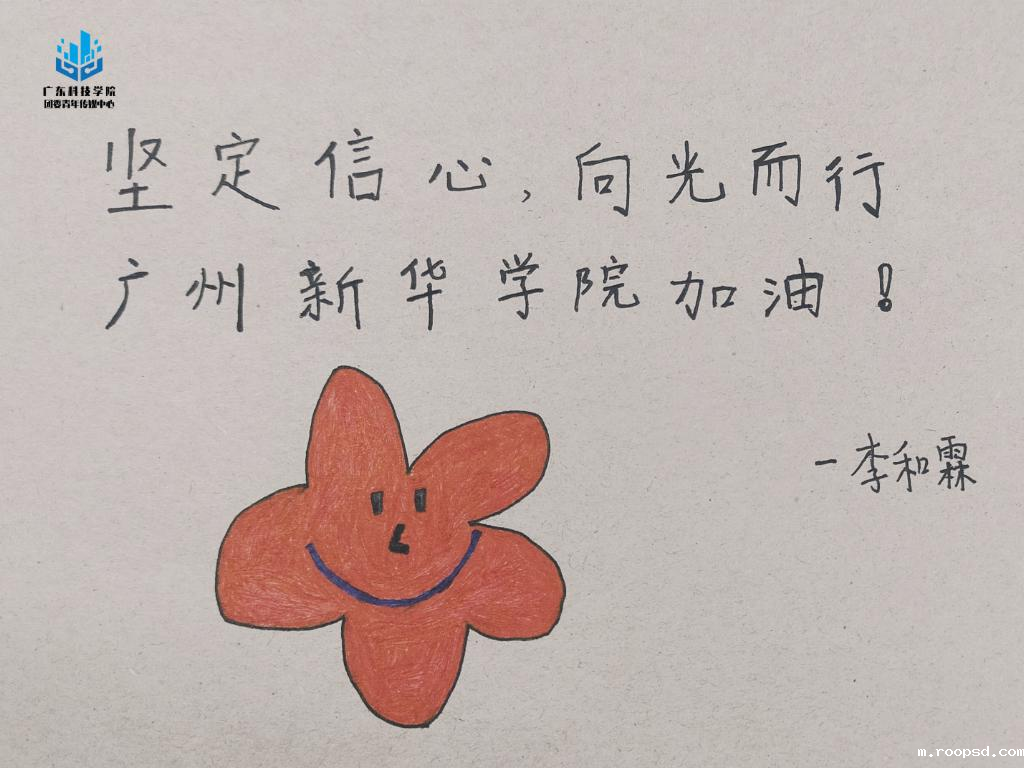 广东科技学院
团委青年传媒中心
坚定信心,向光而行
广州新华学院加油!
-李和霖
m.roopsd.com